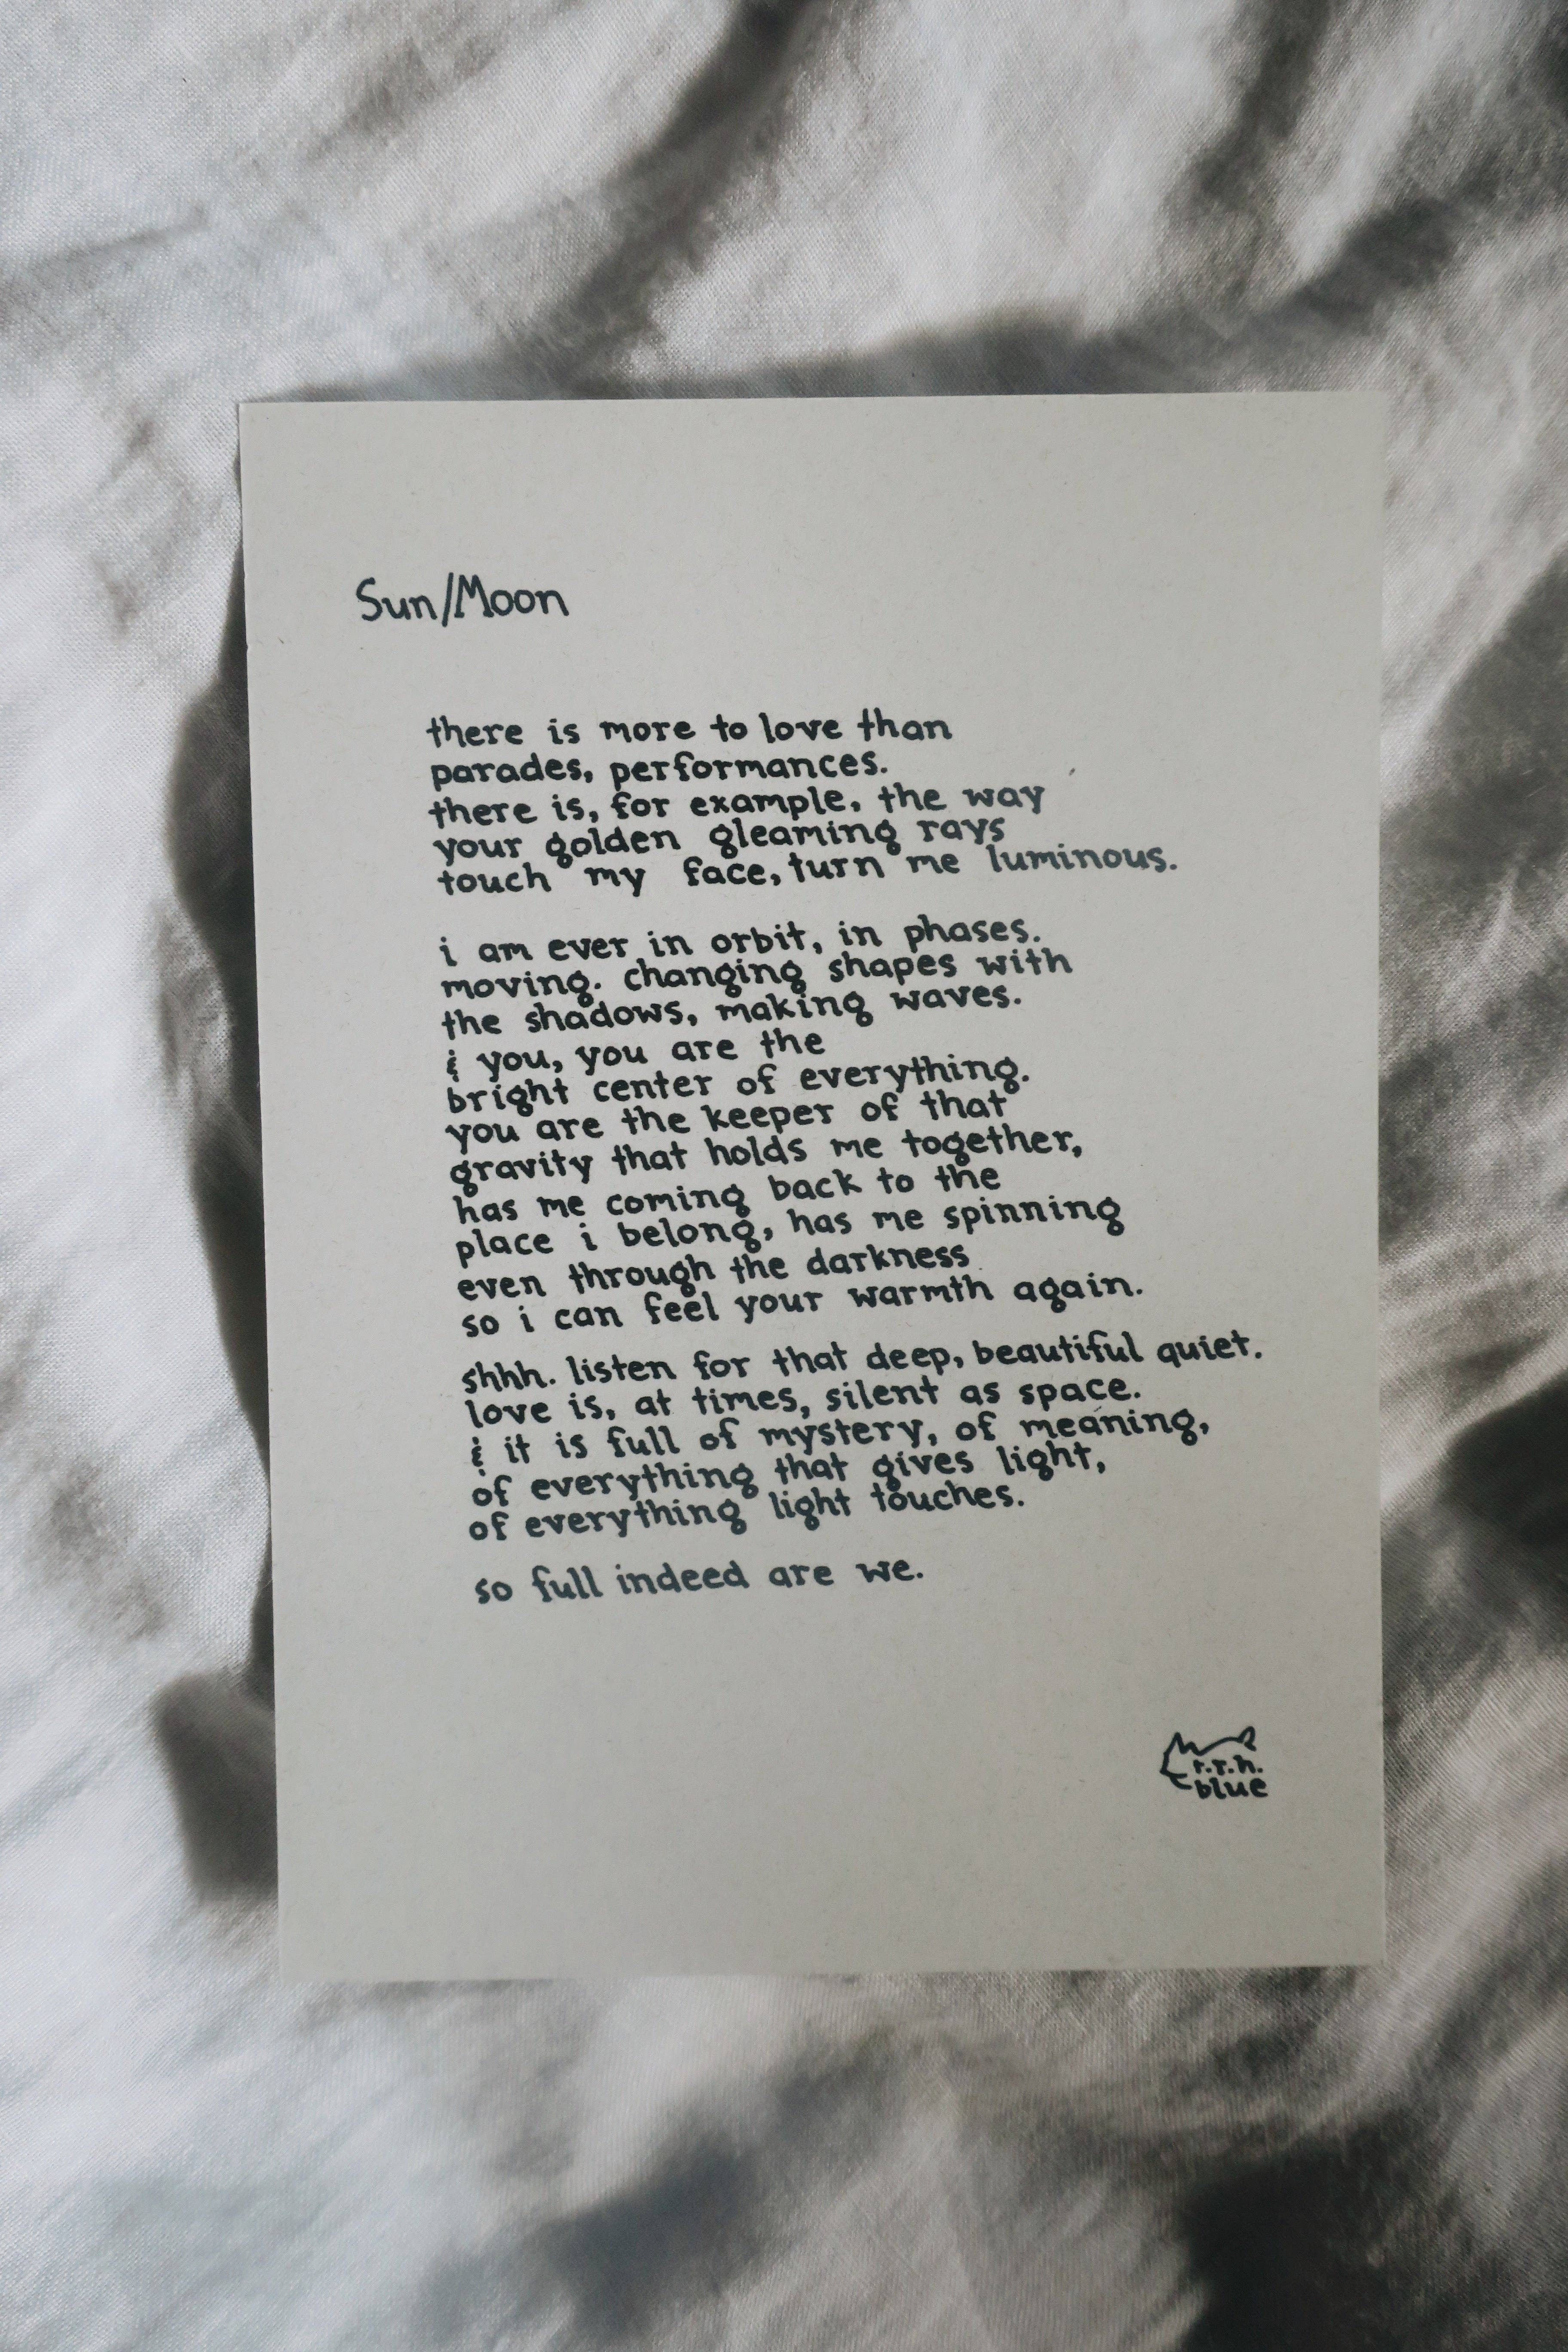 Sun/Moon
there is more to love than
parades, performances.
there is, for example, the way
your golden gleaming rays
touch my face, turn me luminous.
i am ever in orbit, in phases.
moving. changing shapes with
the shadows, making waves.
& you, you are the
bright center of everything.
you are the keeper of that
gravity that holds me together,
has me coming back to the
place i belong, has me spinning
even through the darkness
so i can feel your warmth again.
shhh. listen for that deep, beautiful quiet.
love is, at times, silent as space.
& it is full of mystery, of meaning,
of everything that gives light,
of everything light touches.
so full indeed are we.
r.r.h.
blue